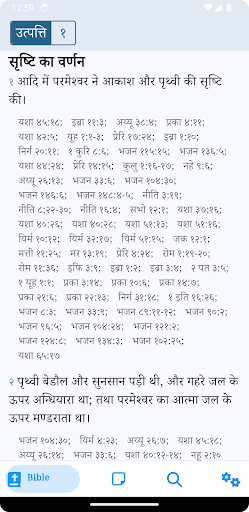 12:59
उत्पत्ति १
सृष्टि का वर्णन
१ आदि में परमेश्वर ने आकाश और पृथ्वी की सृष्टि
की।
यशा ४५:१८; इब्रा ११:३; अय्यू ३८:४; प्रका ४:११;
यशा ४२:५; यूह १:१-३; प्रेरि १७:२४; इब्रा १:१०;
निर्ग २०:११; १ कुरि ८:६; भजन ११५:१५; भजन १३६:५;
यशा ४४:२४; प्रेरि १४:१५; कुलु १:१६-१७; नहे ९:६;
अय्यू २६:१३; भजन ३३:६; भजन १०४:३०;
भजन १४६:६; भजन १४८:४-५; नीति ३:१९;
नीति ८:२२-३०; नीति १६:४; सभो १२:१; यशा ३७:१६;
यशा ४०:२६; यशा ४०:२८; यशा ५१:१३; यशा ५१:१६;
यिर्म १०:१२; यिर्म ३२:१७; यिर्म ५१:१५; जक १२:१;
मत्ती ११:२५; मर १३:१९; प्रेरि ४:२४; रोम १:१९-२०;
रोम ११:३६; इफि ३:९; इब्रा १:२; इब्रा ३:४; २ पत ३:५;
१ यूह १:१; प्रका ३:१४; प्रका १०:६; प्रका १४:७;
प्रका २१:६; प्रका २२:१३; निर्ग ३१:१८; १ इति १६:२६;
भजन ८:३; भजन ३३:९; भजन ८९:११-१२; भजन ९०:२;
भजन ९६:५; भजन १०४:२४; भजन १२१:२;
भजन १२४:८; भजन १३४:३; भजन १०२:२५;
यशा ६५:१७
२ पृथ्वी बेडौल और सुनसान पड़ी थी, और गहरे जल के
ऊपर अन्धियारा था; तथा परमेश्वर का आत्मा जल के
ऊपर मण्डराता था।
भजन १०४:३०; यिर्म ४:२३; अय्यू २६:७; यशा ४५:१८;
अय्यू २६:१४; भजन ३३:६; यशा ४०:१२-१४; नहू २:१०
Bible